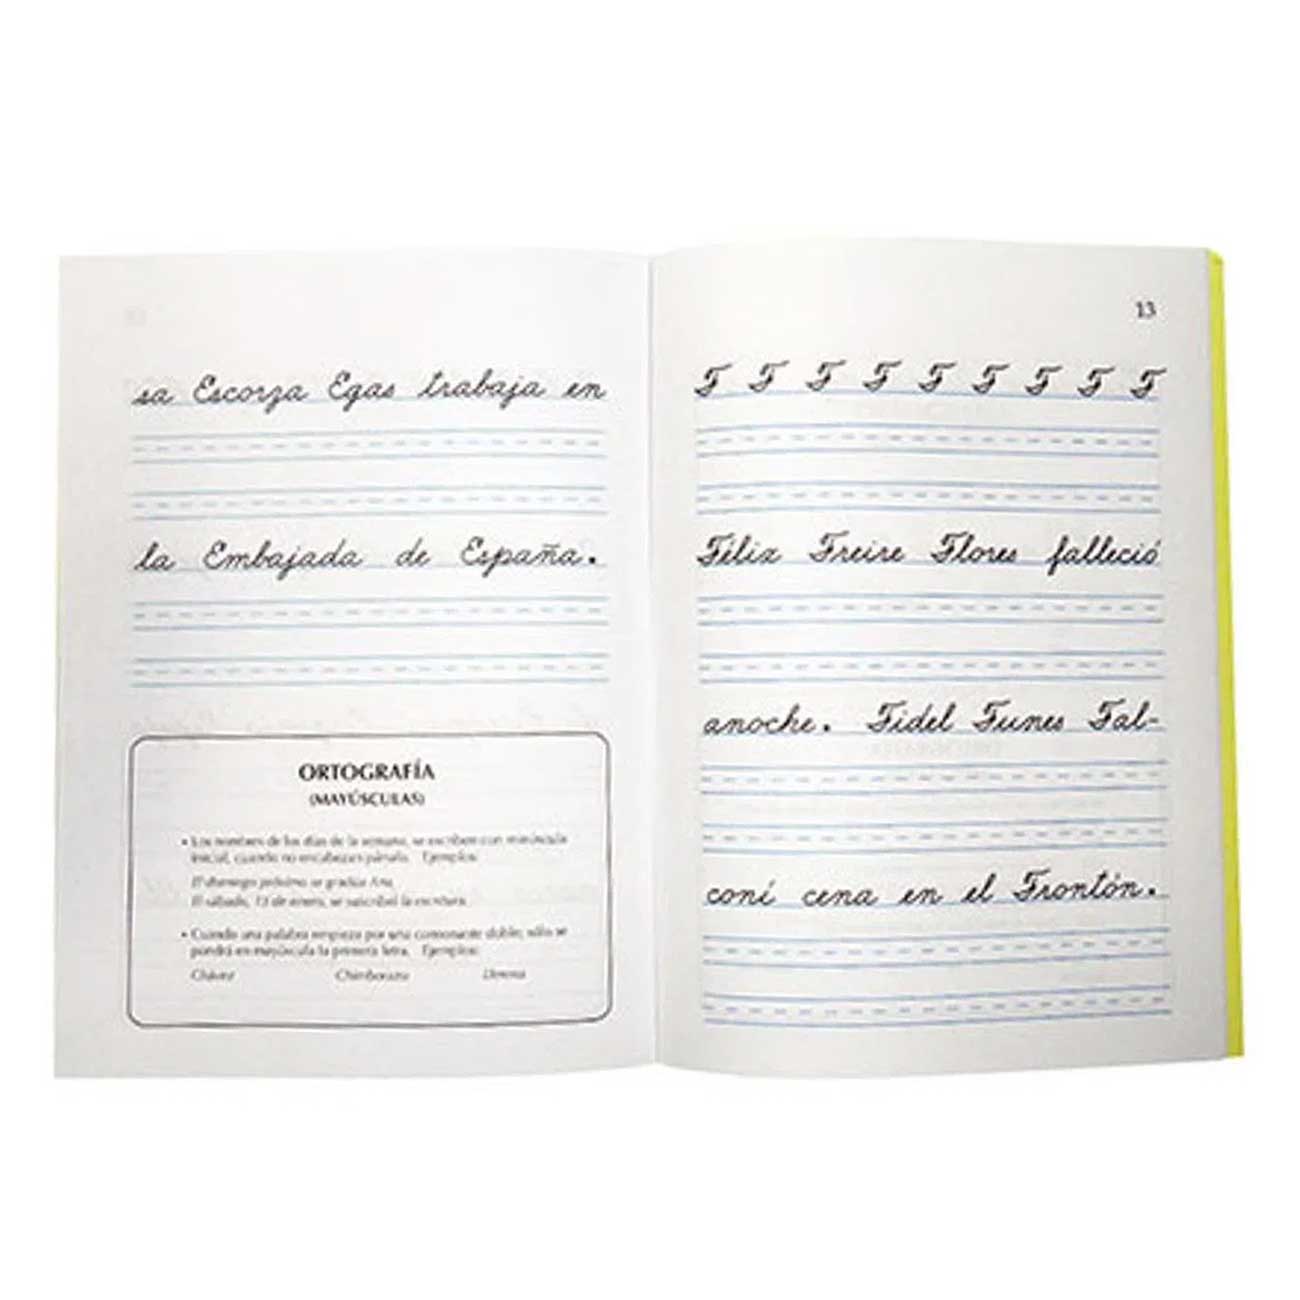 sa Escorza Egas trabaja en
la Embajada de España.
ORTOGRAFÍA
(MAYÚSCULAS)
• Los nombres de los días de la semana, se escriben con minúscula
inicial, cuando no encabezan párrafo. Ejemplos:
El domingo próximo se gradúa Ana.
El sábado, 13 de enero, se suscribió la escritura.
• Cuando una palabra empieza por una consonante doble, sólo se
pondrá en mayúscula la primera letra. Ejemplos:
Chávez Chimborazo Llerena
13
F F F F F F F F F
Félix Freire Flores falleció
anoche. Fidel Funes Fal-
coní cena en el Frontón.